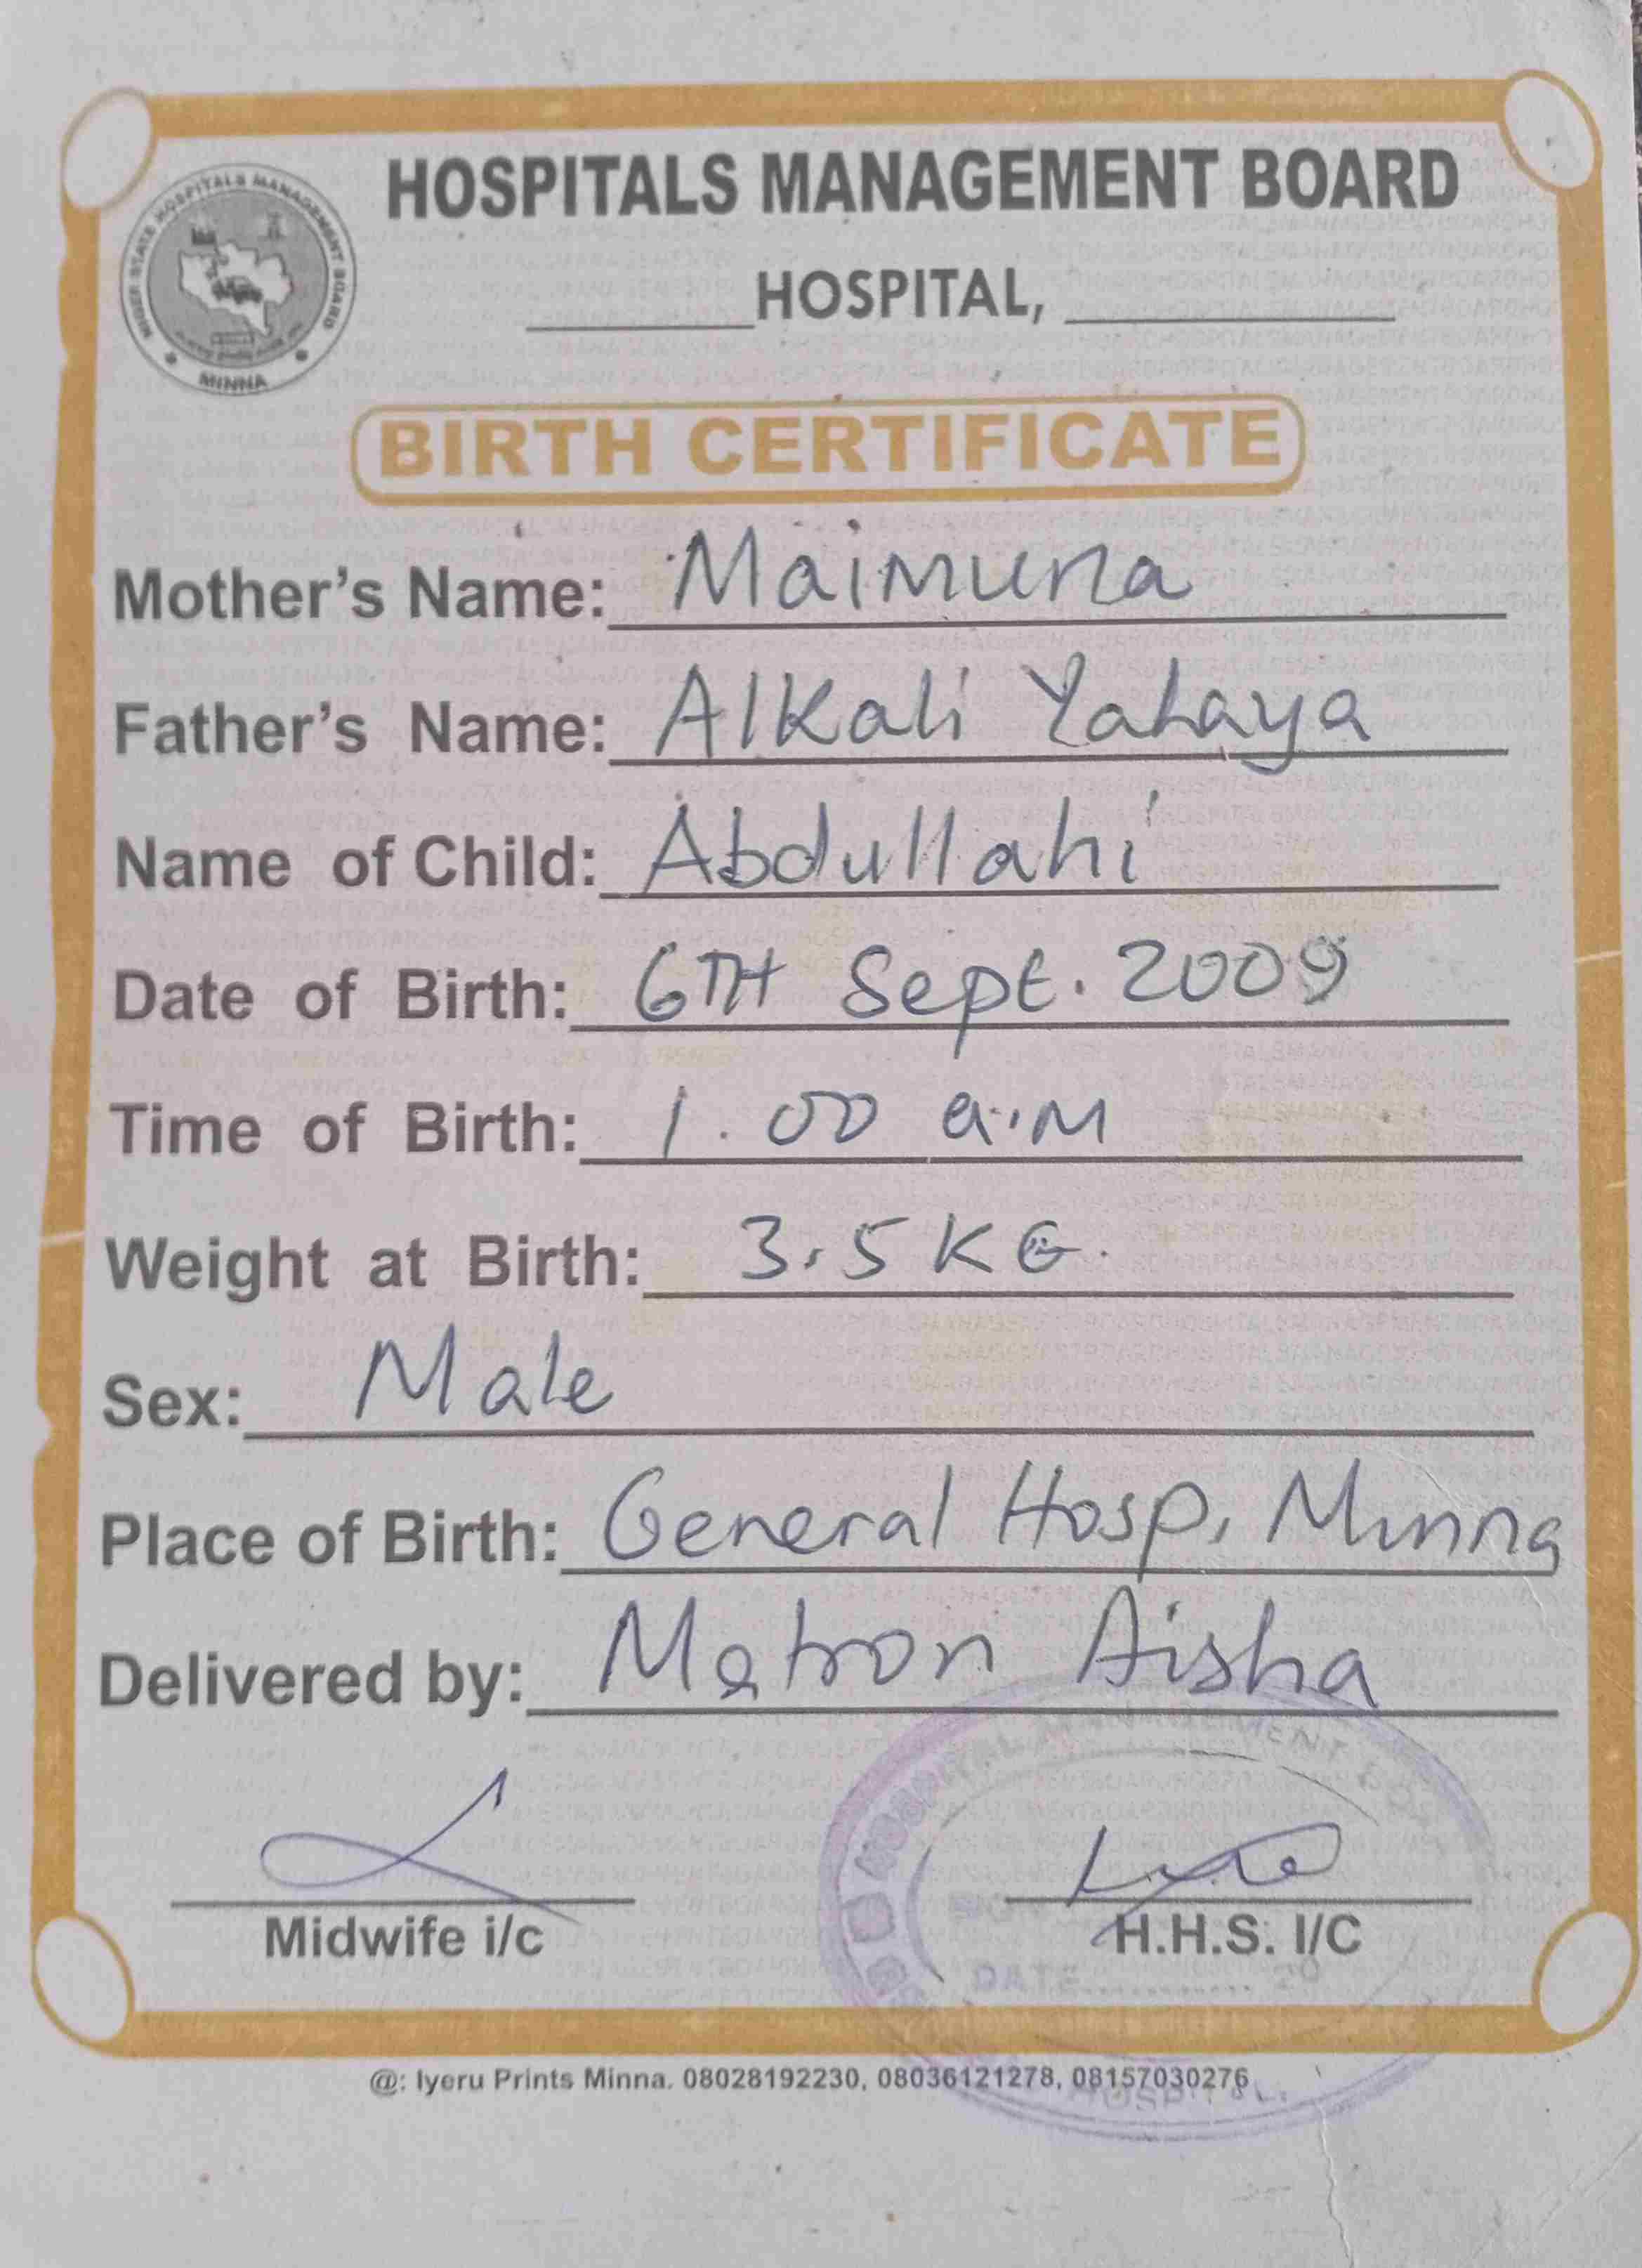 HOSPITALS MANAGEMENT BOARD
NIGER STATE HOSPITALS MANAGEMENT BOARD
MINNA
HOSPITAL,
BIRTH CERTIFICATE
Mother's Name: Maimuna
Father's Name: Alkali Yahaya
Name of Child: Abdullahi
Date of Birth: 6TH Sept. 2009
Time of Birth: 1.00 a.m
Weight at Birth: 3.5 KG.
Sex: Male
Place of Birth: General Hosp, Minna
Delivered by: Matron Aisha
Midwife i/c
H.H.S. I/C
MANAGEMENT
DATE 20
HOSPITAL.
@: Iyeru Prints Minna. 08028192230, 08036121278, 08157030276